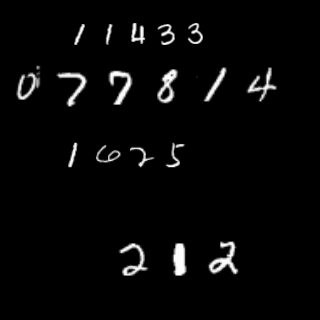 11433
077814
1625
212